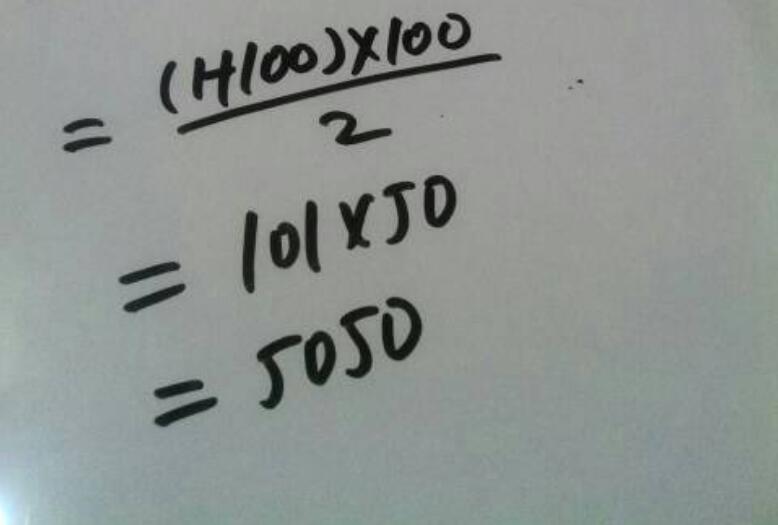 = (1+100)×100 / 2
= 101×50
= 5050